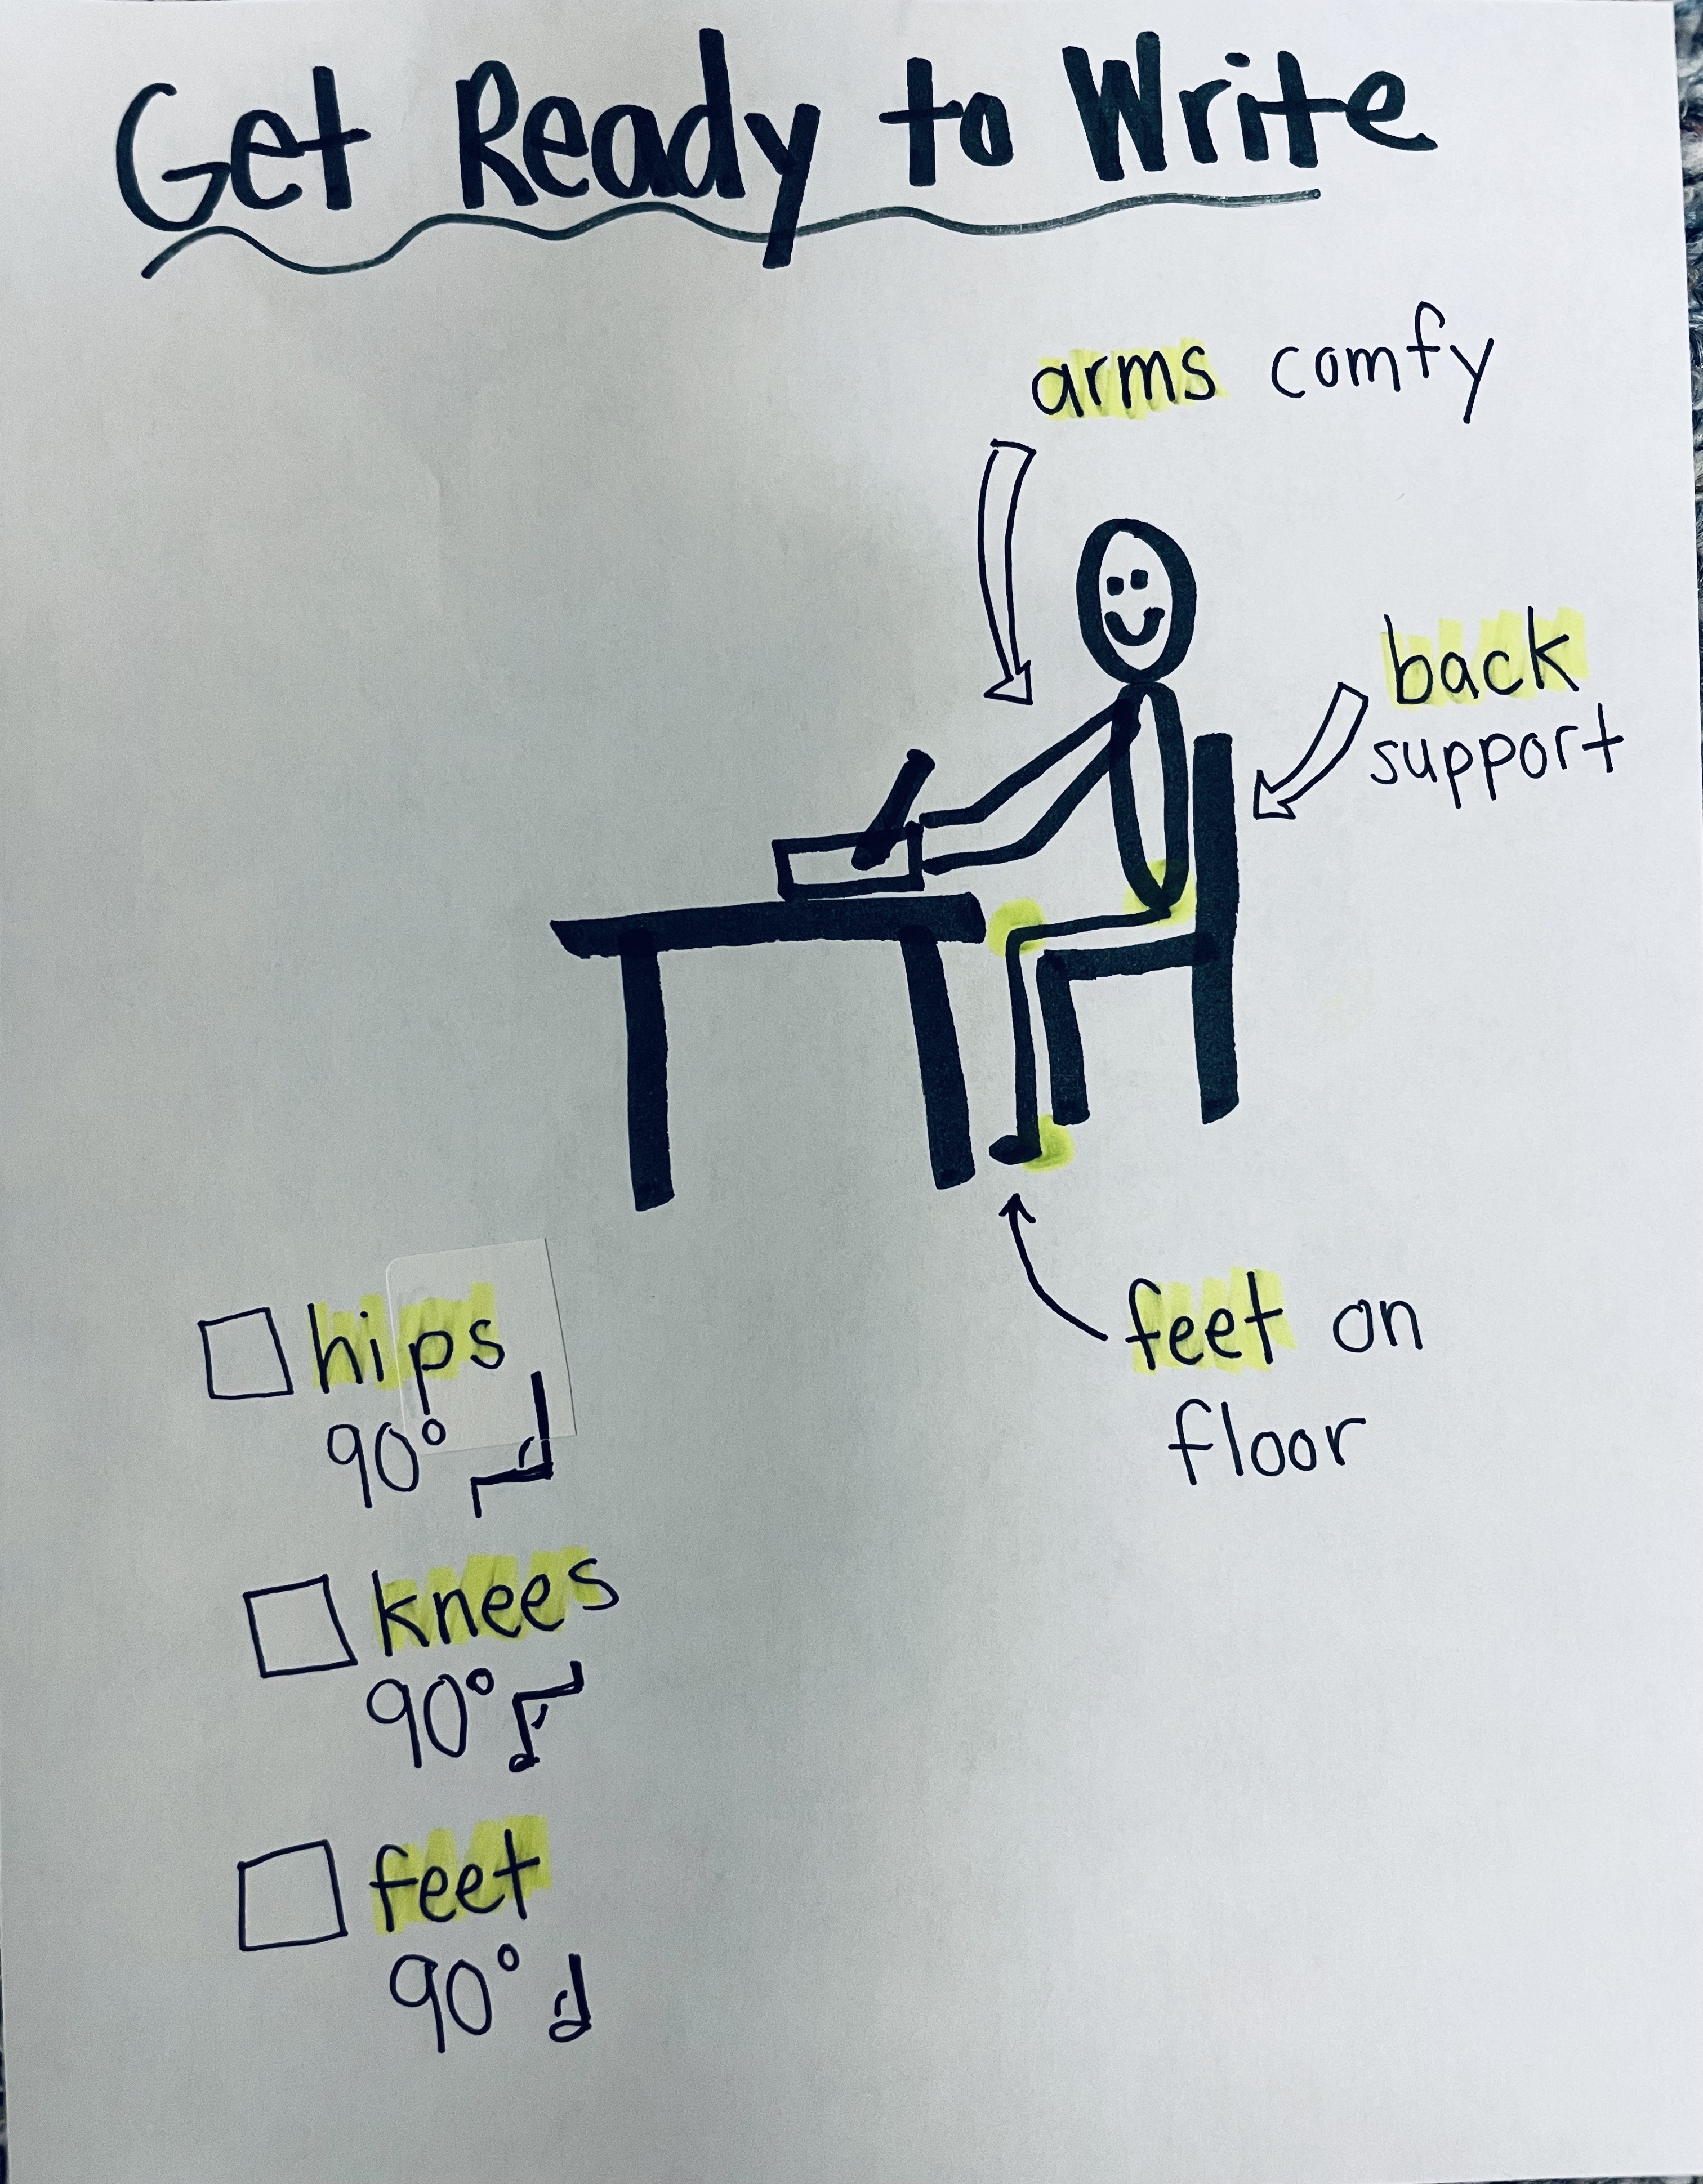 Get Ready to Write
arms comfy
back
support
feet on
floor
☐ hips
90°
☐ knees
90°
☐ feet
90°